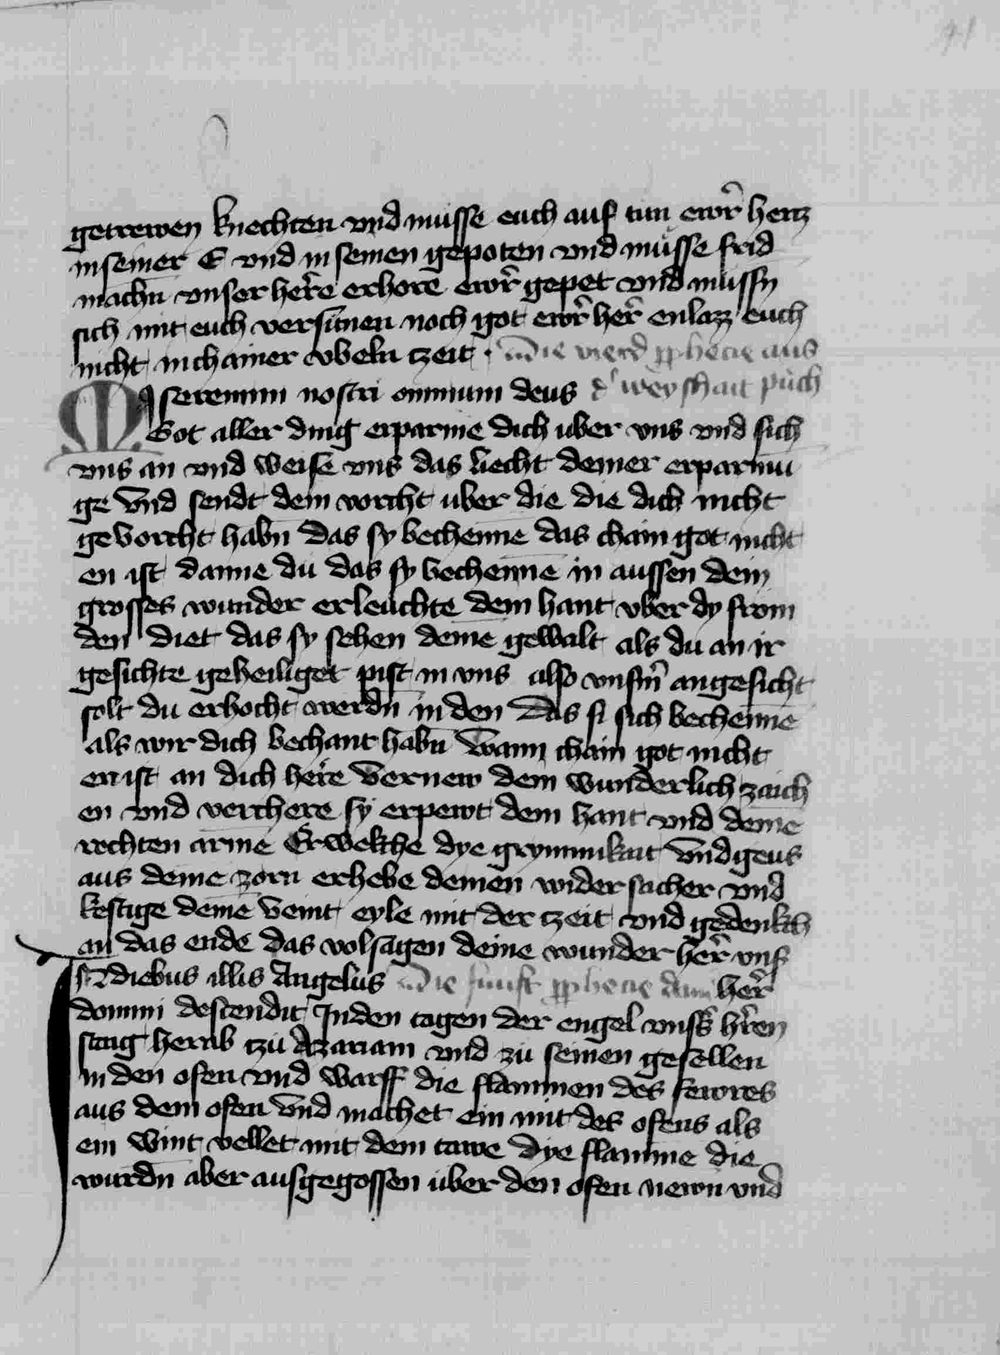 getrewen knechten vnd müsse euch auf tun ewr̄ hertz
in seiner E vnd in seinen gepoten vnd müsse frid
machn̄ vnser her̄re erhore ewr̄ gepet vnd müssn
sich mit euch versünen noch got ewr̄ her̄ enlazz euch
nicht in chainer vbeln tzeit · Die vierd ꝓphecie aus
Miseremini nostri omnium deus d' weyshait püch
Got aller ding erparme dich uber vns vnd sich
vns an vnd weise vns das liecht deiner erparmu
ge vnd sendt dein vorcht uber die die dich nicht
gevorcht habn̄ das sy bechenne das chain got nicht
en ist danne du das sy bechenne in aussen dein
grosses wunder erleuchte dein hant vber dy from
den diet das sy sehen deine gewalt als du an ir
gesichte geheiliget pist in vns also vnsm̄ angesicht
solt du erhocht werdn̄ in den das si sich bechenne
als wir dich bechant habn̄ wann chain got nicht
en ist an dich her̄e vernew dein wunderlich zaich
en vnd verchere sy erpewt dein hant vnd deine
rechten arme Erwelche dye grymmikait vnd geus
aus deine zorn erhebe deinen widersacher vnd
kestige deine veint eyle mit der tzeit vnd gedenkch
an das ende das volsagen deine wunder her̄ vns
In diebus illis Angelus Die funft ꝓphecie her̄
domini descendit Inden tagen der engel vnss̄ hr̄en
staig herab tzu Azariam vnd zu seinen gesellen
in den ofen vnd warff die flammen des fewres
aus dem ofen vnd machet ein mit des ofens als
ein wint vellet mit dem tawe dye flamme die
wurdn̄ aber ausgegossen uber den ofen newn vnd